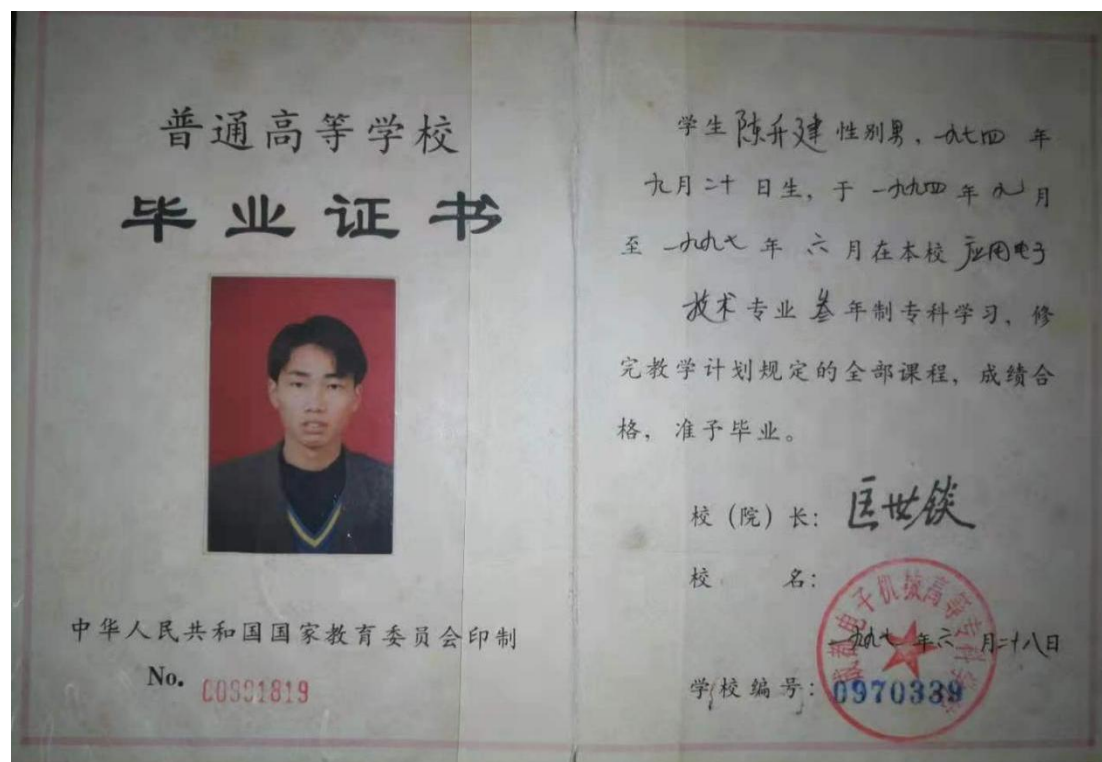 普通高等学校
毕业证书
中华人民共和国国家教育委员会印制
No.
学生 陈升建 性别男，一九七四 年
九月二十 日生，于 一九九四 年 九 月
至 一九九七 年 六 月在本校 应用电子
技术 专业 叁 年制专科学习，修
完教学计划规定的全部课程，成绩合
格，准予毕业。
校（院）长：匡世铗
校 名：
电子机械高等专科学校
一九九七 年 六 月二十八日
学校编号：0970339